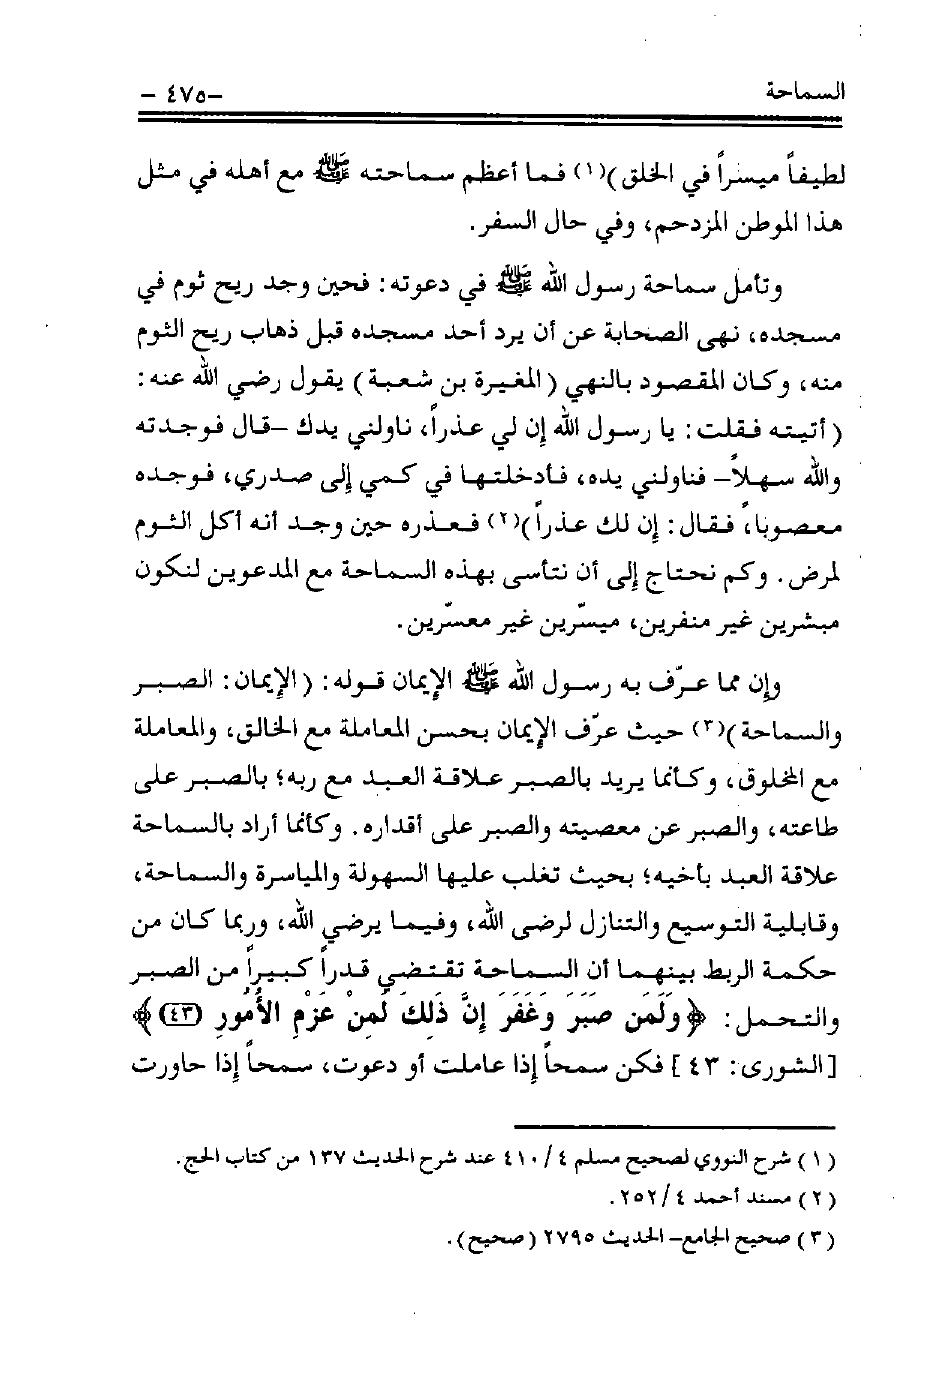 السماحة
-٤٧٥ -
لطيفاً ميسراً في الخلق)(١) فما أعظم سماحته ﷺ مع أهله في مثل
هذا الموطن المزدحم، وفي حال السفر.
وتأمل سماحة رسول الله ﷺ في دعوته: فحين وجد ريح ثوم في
مسجده، نهى الصحابة عن أن يرد أحد مسجده قبل ذهاب ريح الثوم
منه، وكان المقصود بالنهي (المغيرة بن شعبة) يقول رضي الله عنه:
(أتيته فقلت: يا رسول الله إن لي عذراً، ناولني يدك -قال فوجدته
والله سهلاً- فناولني يده، فأدخلتها في كمي إلى صدري، فوجده
معصوباً، فقال: إن لك عذراً)(٢) فعذره حين وجد أنه أكل الثوم
لمرض. وكم نحتاج إلى أن نتأسى بهذه السماحة مع المدعوين لنكون
مبشرين غير منفرين، ميسّرين غير معسّرين.
وإن مما عرّف به رسول الله ﷺ الإيمان قوله: (الإيمان: الصبر
والسماحة)(٣) حيث عرّف الإيمان بحسن المعاملة مع الخالق، والمعاملة
مع المخلوق، وكأنما يريد بالصبر علاقة العبد مع ربه؛ بالصبر على
طاعته، والصبر عن معصيته والصبر على أقداره. وكأنما أراد بالسماحة
علاقة العبد بأخيه؛ بحيث تغلب عليها السهولة والمياسرة والسماحة،
وقابلية التوسيع والتنازل لرضى الله، وفيما يرضي الله، وربما كان من
حكمة الربط بينهما أن السماحة تقتضي قدراً كبيراً من الصبر
والتحمل: ﴿وَلَمَن صَبَرَ وَغَفَرَ إِنَّ ذَلِكَ لَمِنْ عَزْمِ الأُمُورِ (٤٣)﴾
[الشورى: ٤٣] فكن سمحاً إذا عاملت أو دعوت، سمحاً إذا حاورت
(١) شرح النووي لصحيح مسلم ٤/ ٤١٠ عند شرح الحديث ١٣٧ من كتاب الحج.
(٢) مسند أحمد ٤/ ٢٥٢.
(٣) صحيح الجامع- الحديث ٢٧٩٥ (صحيح).